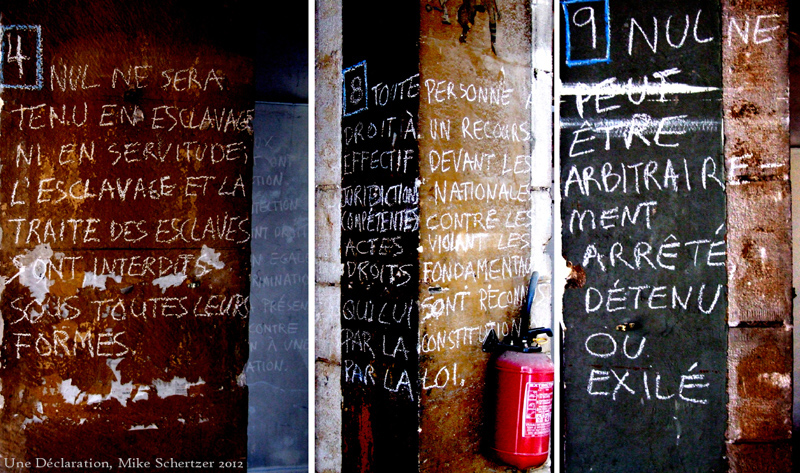 4 NUL NE SERA
TENU EN ESCLAVAGE
NI EN SERVITUDE,
L'ESCLAVAGE ET LA
TRAITE DES ESCLAVES
SONT INTERDITS
SOUS TOUTES LEURS
FORMES.
8 TOUTE PERSONNE A
DROIT, À UN RECOURS
EFFECTIF DEVANT LES
JURIDICTION NATIONALES
COMPÉTENTES CONTRE LES
ACTES VIOLANT LES
DROITS FONDAMENTAU
QUI LUI SONT RECONNUS
PAR LA CONSTITUTION
PAR LA LOI.
9 NUL NE
PEUT
ÊTRE
ARBITRAIRE-
MENT
ARRÊTÉ,
DÉTENU
OU
EXILÉ
Une Déclaration, Mike Schertzer 2012